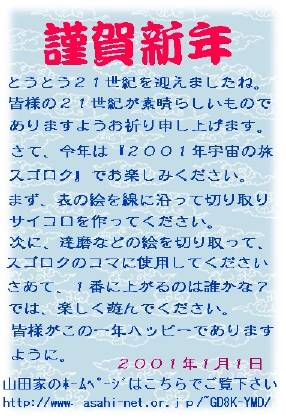 謹賀新年
とうとう２１世紀を迎えましたね。
皆様の２１世紀が素晴らしいもので
ありますようお祈り申し上げます。
さて、今年は『２００１年宇宙の旅
スゴロク』でお楽しみください。
まず、表の絵を線に沿って切り取り
サイコロを作ってください。
次に、達磨などの絵を切り取って、
スゴロクのコマに使用してください
さあて、１番に上がるのは誰かな？
では、楽しく遊んでください。
皆様がこの一年ハッピーであります
ように。
２００１年１月１日
山田家のﾎｰﾑﾍﾟｰｼﾞはこちらでご覧下さい
http://www.asahi-net.or.jp/~GD8K-YMD/